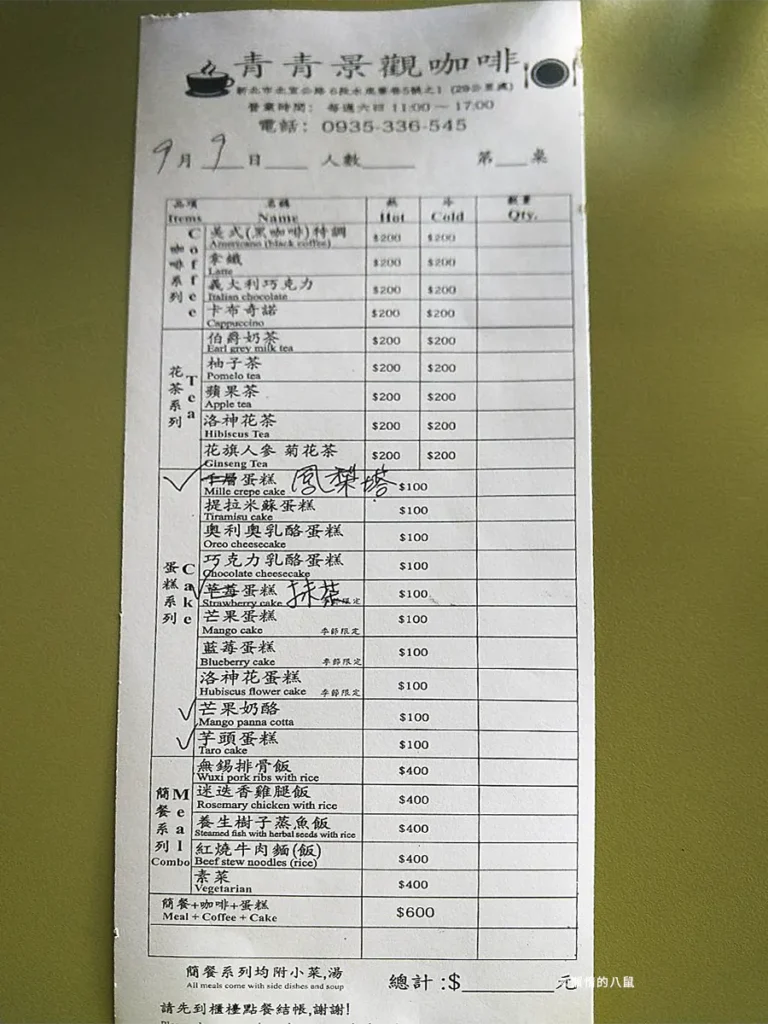 青青景觀咖啡
營業時間: 每週六日 11:00 ~ 17:00
電話: 0935-336-545
9月9日 人數 第 桌
品項 名稱 熱 冷 數量
Items Name Hot Cold Qty.
咖啡系列 Coffee
美式(黑咖啡)特調 $200 $200
Americano (black coffee)
拿鐵 $200 $200
Latte
義大利巧克力 $200 $200
Italian chocolate
卡布奇諾 $200 $200
Cappuccino
花茶系列 Tea
伯爵奶茶 $200 $200
Earl grey milk tea
柚子茶 $200 $200
Pomelo tea
蘋果茶 $200 $200
Apple tea
洛神花茶 $200 $200
Hibiscus Tea
花旗人參 菊花茶 $200 $200
Ginseng Tea
蛋糕系列 Cake
千層蛋糕 鳳梨塔 $100
Mille crepe cake
提拉米蘇蛋糕 $100
Tiramisu cake
奧利奧乳酪蛋糕 $100
Oreo cheesecake
巧克力乳酪蛋糕 $100
Chocolate cheesecake
草莓蛋糕 抹茶 $100
Strawberry cake 限定
芒果蛋糕 $100
Mango cake 季節限定
藍莓蛋糕 $100
Blueberry cake 季節限定
洛神花蛋糕 $100
Hubiscus flower cake 季節限定
芒果奶酪 $100
Mango panna cotta
芋頭蛋糕 $100
Taro cake
簡餐系列 Meal Combo
無錫排骨飯 $400
Wuxi pork ribs with rice
迷迭香雞腿飯 $400
Rosemary chicken with rice
養生樹子蒸魚飯 $400
Steamed fish with herbal seeds with rice
紅燒牛肉麵(飯) $400
Beef stew noodles (rice)
素菜 $400
Vegetarian
簡餐+咖啡+蛋糕 $600
Meal + Coffee + Cake
簡餐系列均附小菜,湯
All meals come with side dishes and soup
總計:$ 元
的八鼠
請先到櫃檯點餐結帳,謝謝!